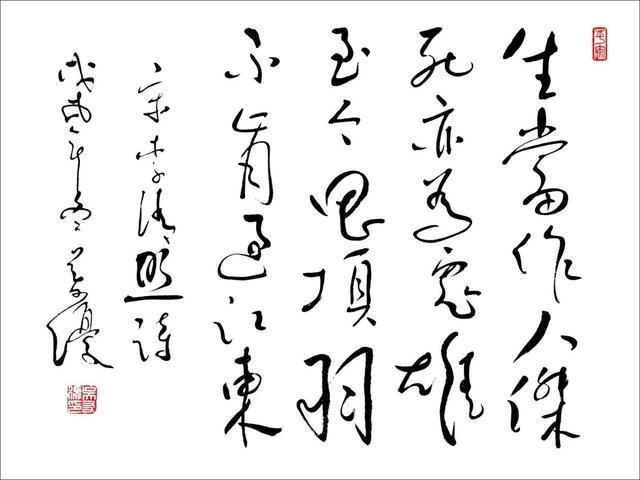 生當作人傑
死亦為鬼雄
至今思項羽
不肯過江東
宋李清照詩
戊戌年冬